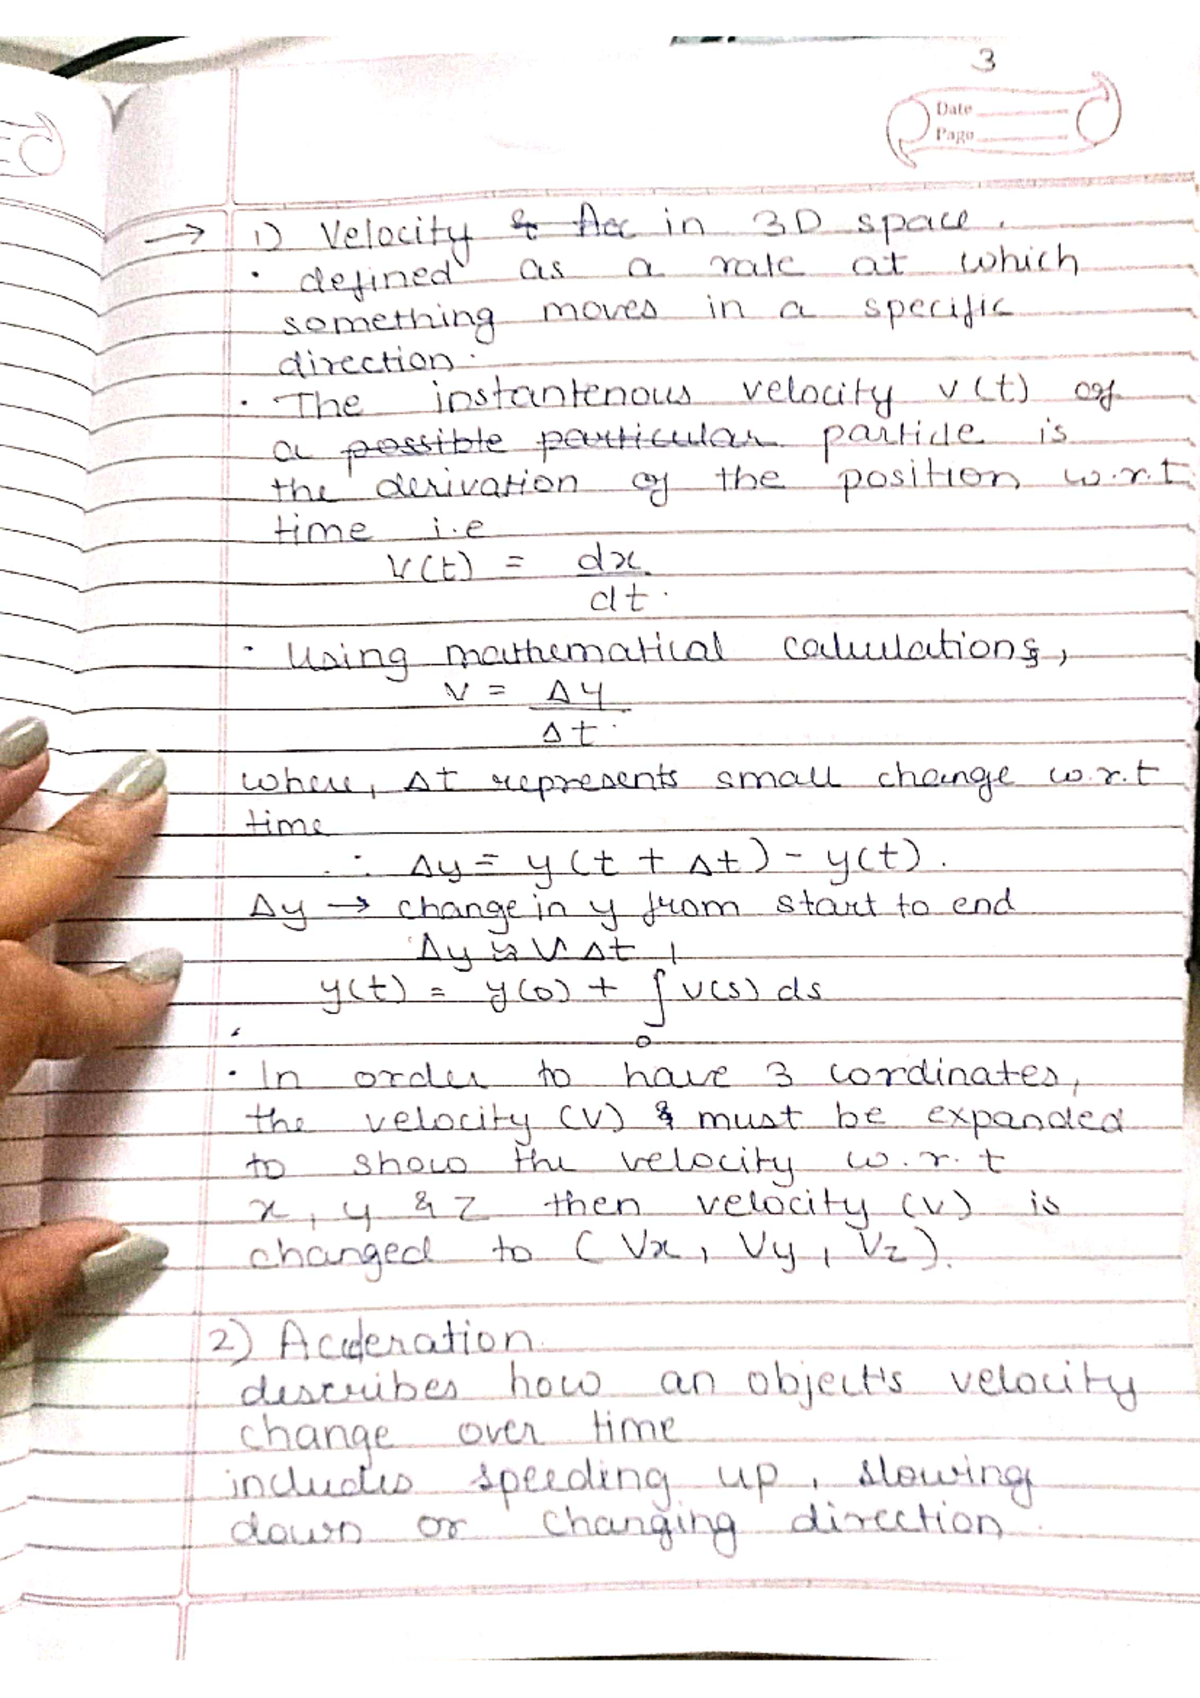 3
Date
Page
→ 1) Velocity & Acc in 3D space.
• defined as a rate at which
something moves in a specific
direction.
• The instantenous velocity v(t) of
a possible particular particle is
the derivation of the position w.r.t
time i.e
v(t) = dx
dt.
• Using mathematical calculations,
v = Δy
Δt.
where, Δt represents small change w.r.t
time
∴ Δy = y(t + Δt) - y(t).
Δy → change in y from start to end
Δy ≈ v Δt
y(t) = y(0) + ∫ v(s) ds
0
• In order to have 3 cordinates,
the velocity (v) must be expanded
to show the velocity w.r.t
x, y & z then velocity (v) is
changed to (Vx, Vy, Vz).
2) Acceleration
describes how an object's velocity
change over time
includes speeding up, slowing
down or changing direction.